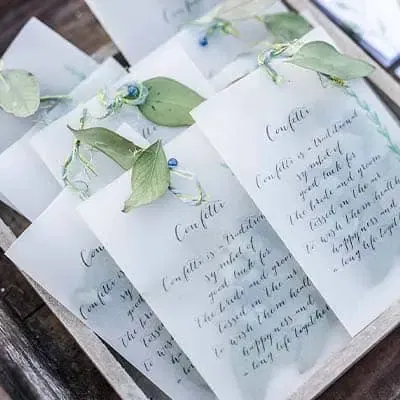 Confetti
Confetti
Confetti is a traditional
symbol of
good luck for
the bride and groom
tossed in the air
to wish them health
happiness and
a long life together
Confetti
Confetti is a traditional
symbol of
good luck for
the bride and groom
tossed in the air
to wish them health
happiness and
a long life together
Confetti
Confetti is a
symbol
good
the bride
tossed
to wish
happ
a long